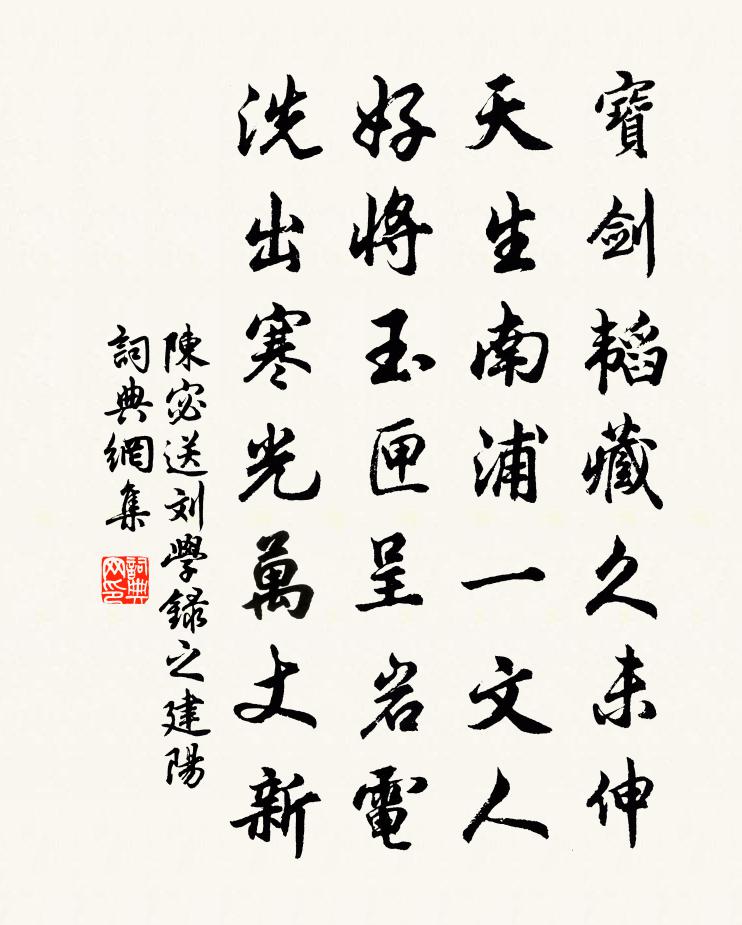 寶劍韜藏久未伸
天生南浦一文人
好將玉匣呈岩電
洗出寒光萬丈新
陳宓送刘學録之建陽
詞典網集
詞典网印